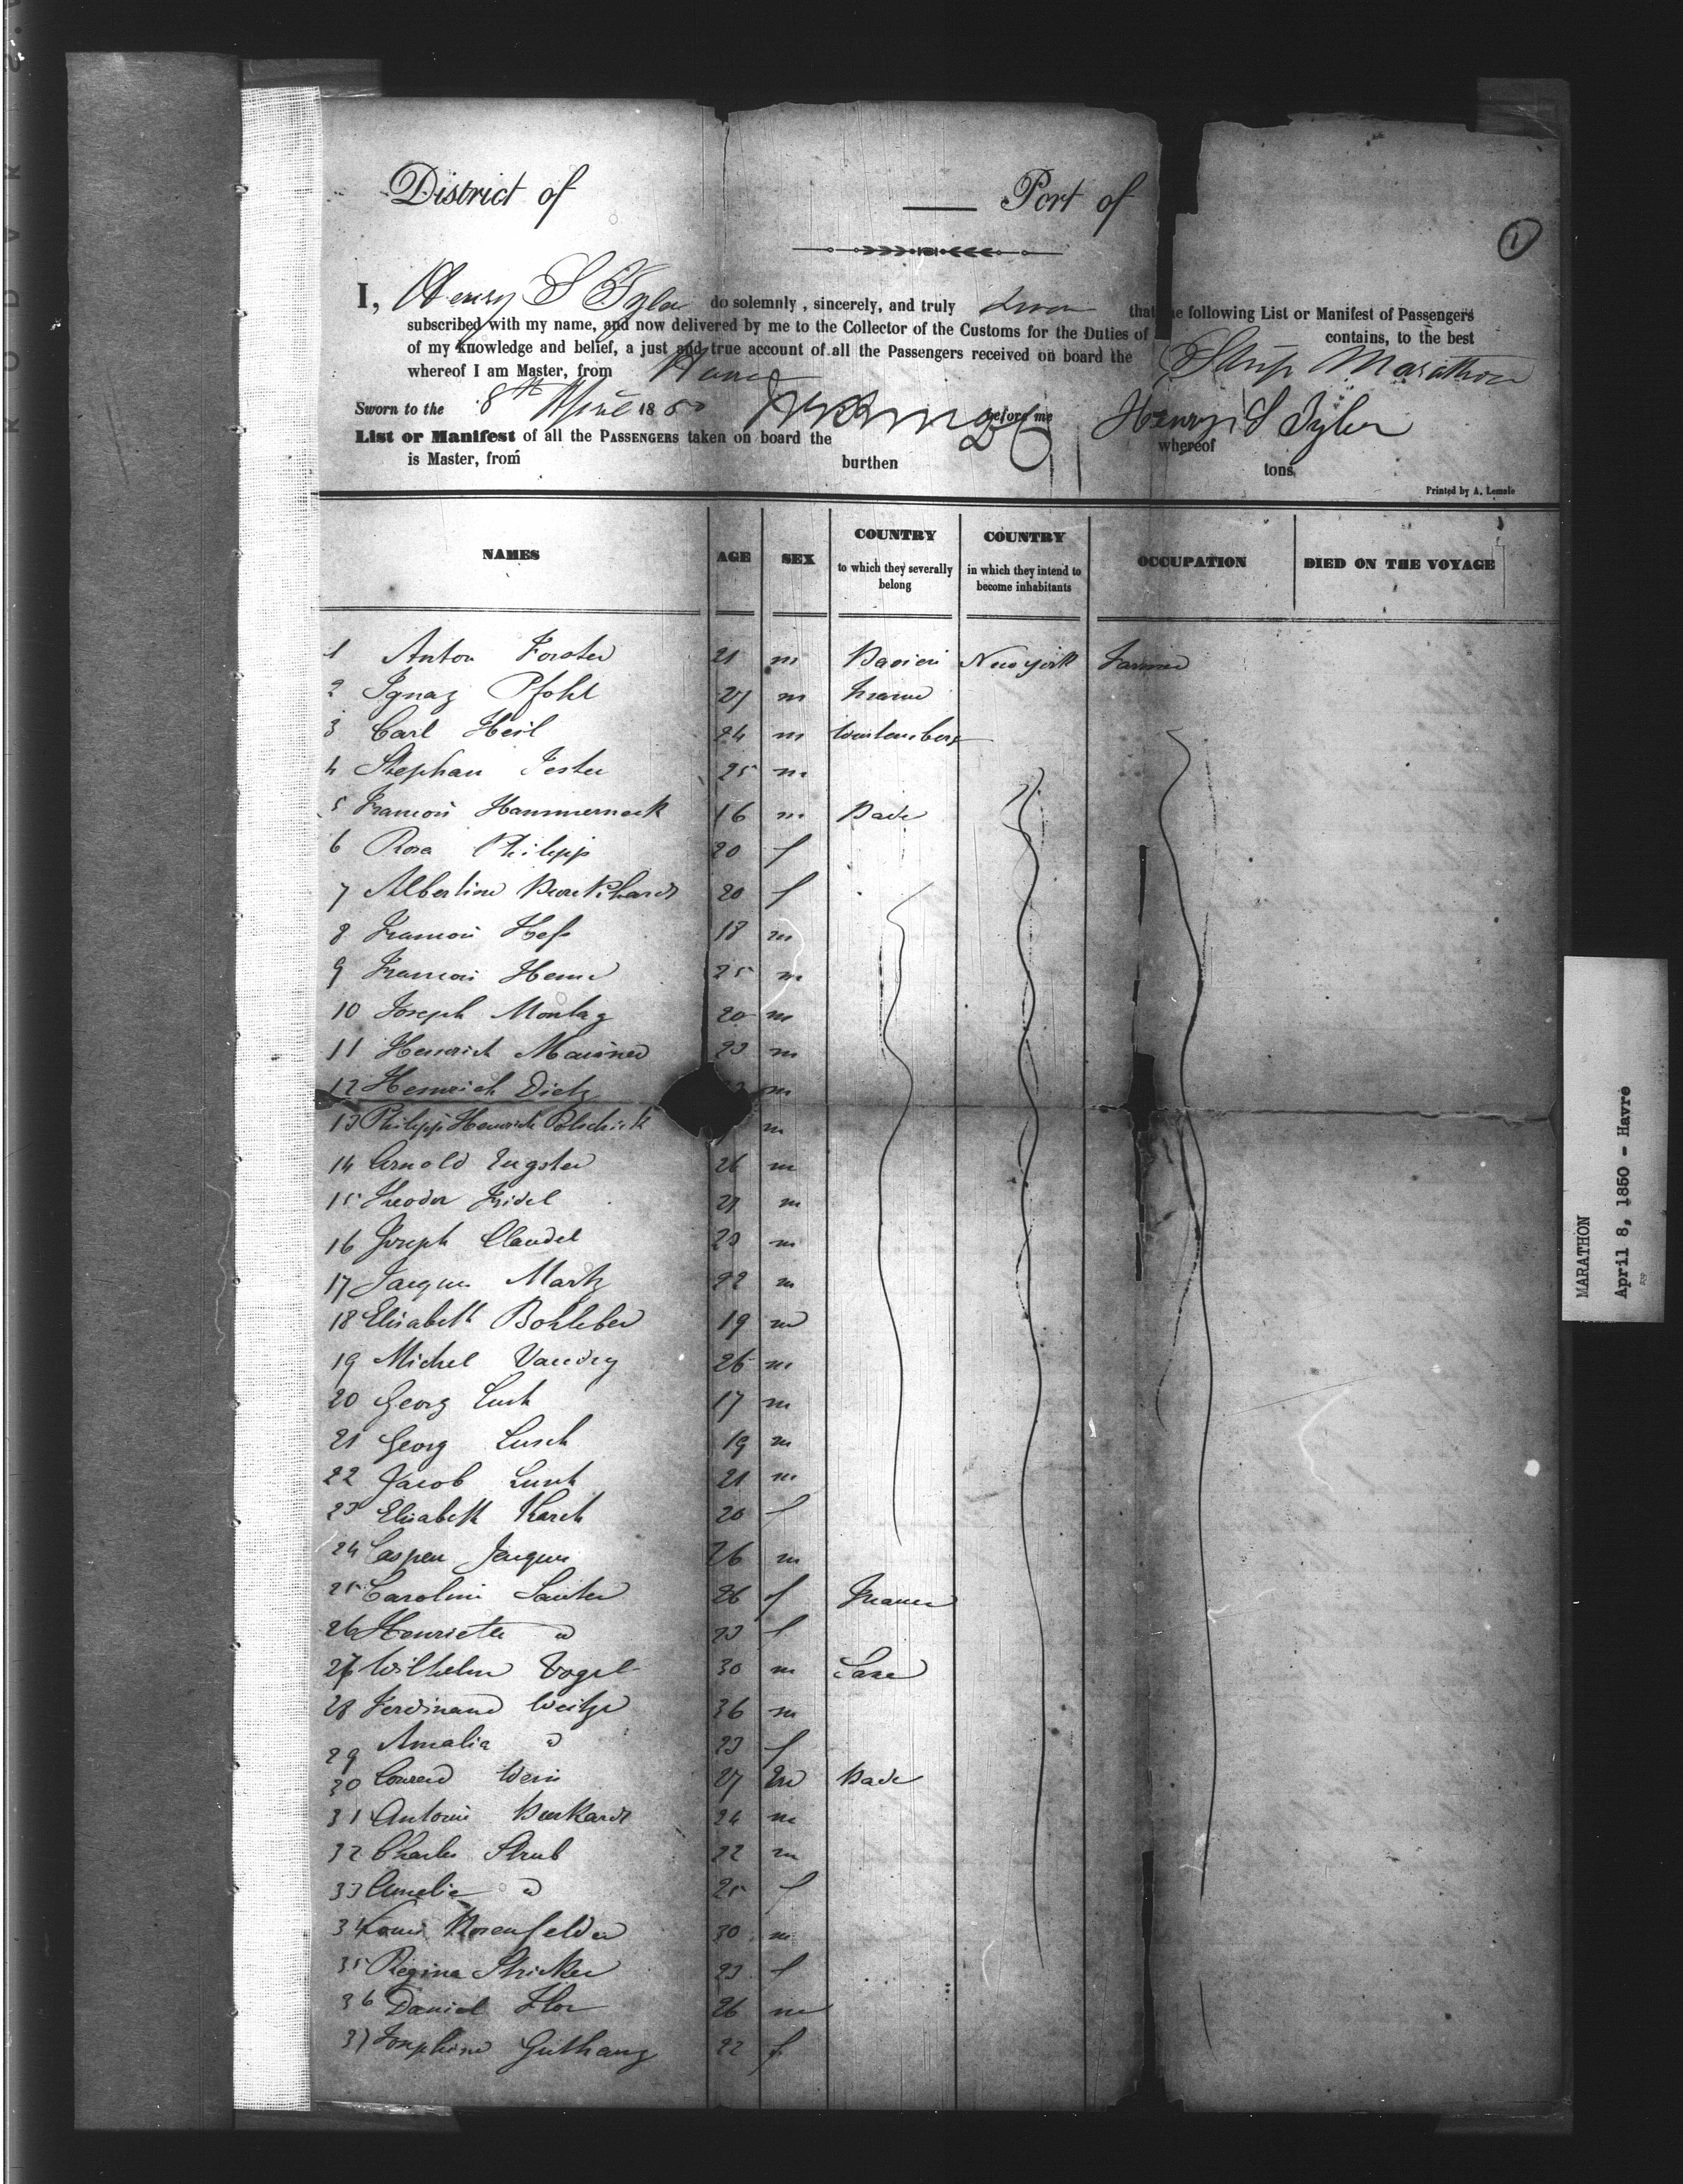 District of Port of
1
I, Henry S Tyler do solemnly, sincerely, and truly that the following List or Manifest of Passengers
subscribed with my name, and now delivered by me to the Collector of the Customs for the Duties of contains, to the best
of my knowledge and belief, a just and true account of all the Passengers received on board the Ship Marathon
whereof I am Master, from Havre
Sworn to the 8th April 1850 before me Henry S Tyler
List or Manifest of all the PASSENGERS taken on board the whereof
is Master, from burthen tons
Printed by A. Lemale
NAMES AGE SEX COUNTRY to which they severally belong COUNTRY in which they intend to become inhabitants OCCUPATION DIED ON THE VOYAGE
1 Anton Forster 21 m Bavieri New york Farmer
2 Ignaz Pfohl 27 m France
3 Carl Heil 24 m Wurtemberg
4 Stephan Jester 25 m
5 Francois Hammernock 16 m Bade
6 Rosa Philipp 20 f
7 Albertine 20 f
8 Francois Hess 18 m
9 Francois 25 m
10 Joseph Montag 20 m
11 Heinrich 23 m
12 Heinrich Dietz m
13 Philipp Heinrich m
14 Arnold Engster 26 m
15 Theodor Fridel 21 m
16 Joseph Claudel 23 m
17 Jacques Martz 22 m
18 Elisabeth Bohleber 19 m
19 Michel 26 m
20 Georg 17 m
21 Georg Lusch 19 m
22 Jacob Lusch 21 m
23 Elisabeth Karch 20 f
24 Casper Jacques 26 m
25 Carolini Sauter 26 f France
26 Henriette d 23 f
27 Wilhelm Vogel 30 m Saxe
28 Ferdinand Weitze 36 m
29 Amalia d 23 f
30 Conrad 27 m Bade
31 Antoine Burkardt 24 m
32 Charles Strub 22 m
33 Amelie d 25 f
34 Louis Rosenfelder 30 m
35 Regina Stricker 23 f
36 Daniel Flor 26 m
37 Josephine Guthang 22 f
MARATHON
April 8, 1850 - Havre